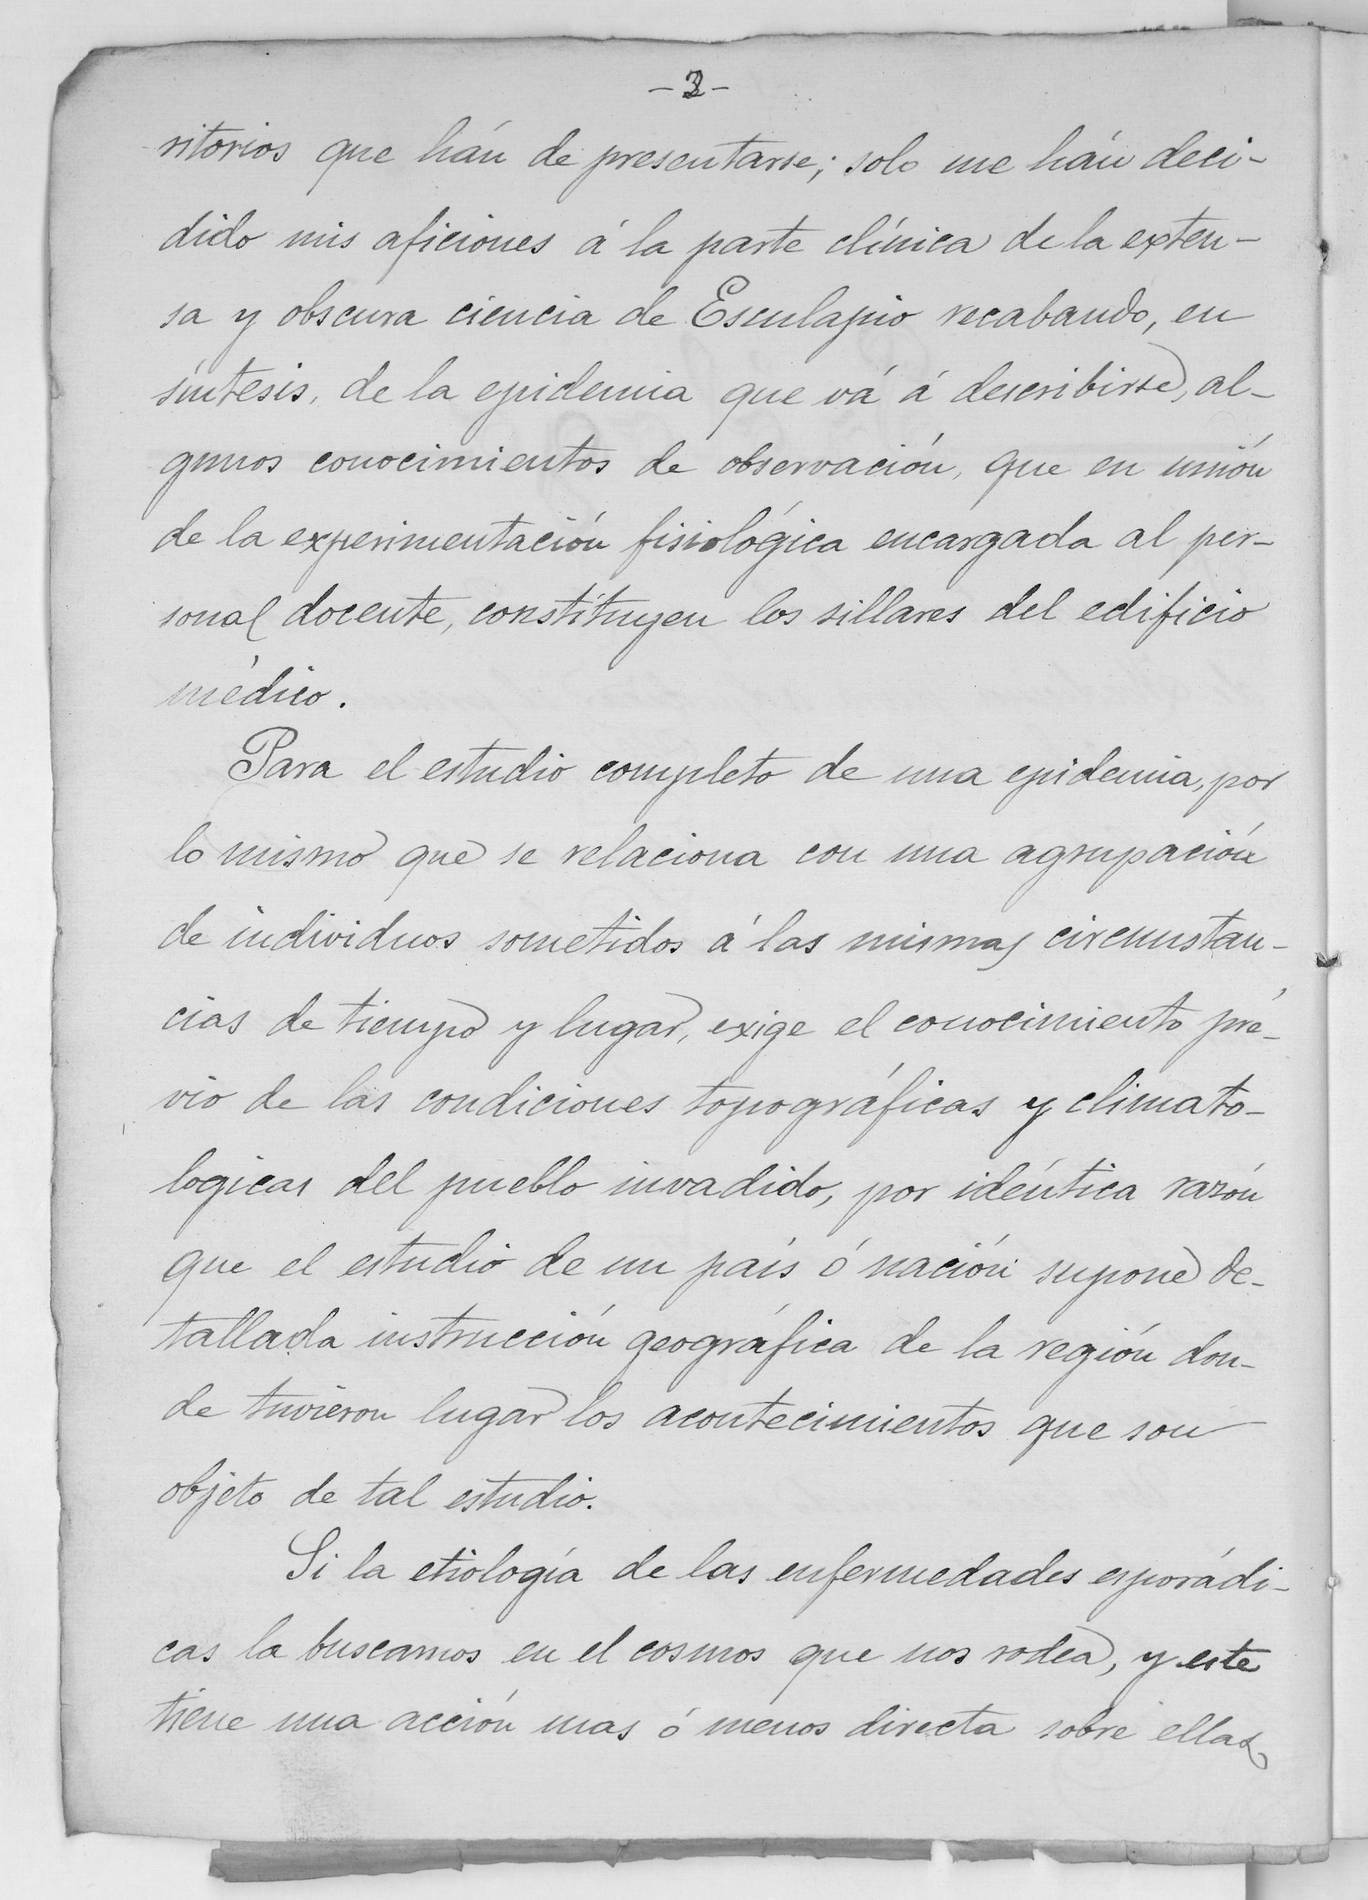 -3-
ritorios que hán de presentarse; solo me hán deci-
dido mis aficiones á la parte clínica de la exten-
sa y obscura ciencia de Esculapio recabando, en
síntesis, de la epidemia que vá á describirse, al-
gunos conocimientos de observación, que en unión
de la experimentación fisiológica encargada al per-
sonal docente, constituyen los sillares del edificio
médico.
Para el estudio completo de una epidemia, por
lo mismo que se relaciona con una agrupación
de individuos sometidos á las mismas circunstan-
cias de tiempo y lugar, exige el conocimiento pré-
vio de las condiciones topográficas y climato-
logicas del pueblo invadido, por idéntica razón
que el estudio de un país ó nación supone de-
tallada instrucción geográfica de la región don-
de tuvieron lugar los acontecimientos que son
objeto de tal estudio.
Si la etiología de las enfermedades esporádi-
cas la buscamos en el cosmos que nos rodea, y este
tiene una acción mas ó menos directa sobre ellas,